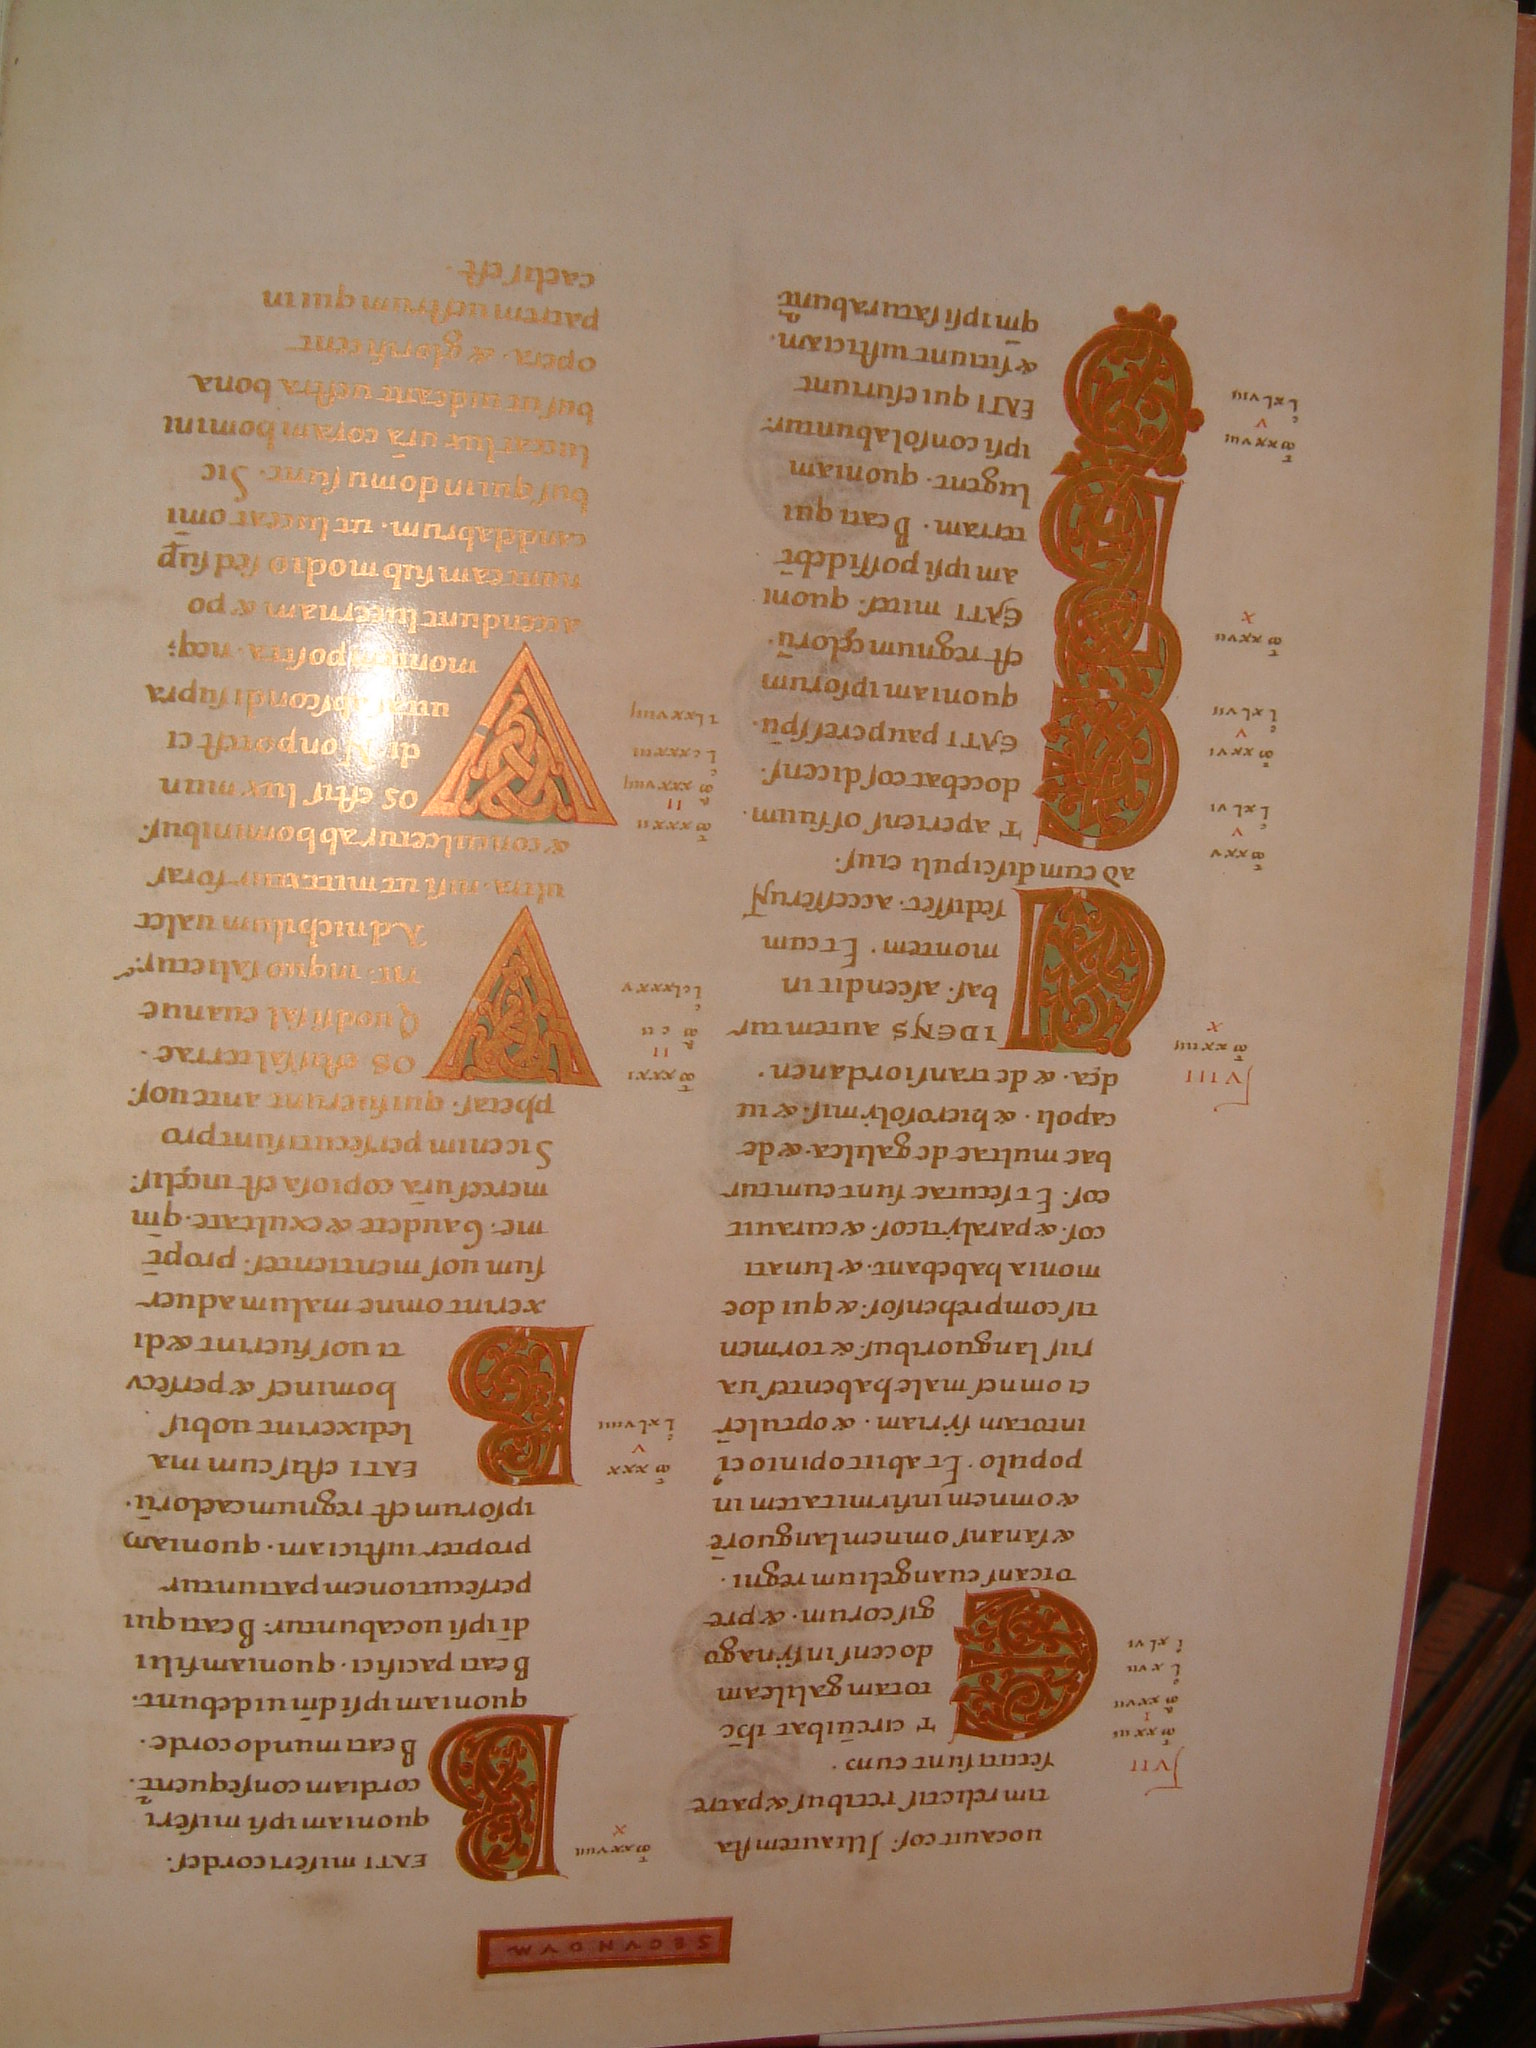 SECVNDVM
uocauit eos. Illi autem sta
tim relictis retibus & patre
secuti sunt eum.
ET circuibat ihc̄
totam galileam
docens in synago
gis eorum. & pre
dicans euangelium regni.
& sanans omnem languorē
& omnem infirmitatem in
populo. Et abiit opinio ei'
in totam syriam. & optuler̄
ei omnes male habentes ua
riis languoribus. & tormen
tis comprehensos. & qui doe
monia habebant. & lunati
cos. & paralyticos. & curauit
eos. Et secutae sunt eum tur
bae multae de galilea. & de
capoli. & hierosolymis. & iu
dęa. & de trans iordanen.
VIDENS autem tur
bas. ascendit in
montem. Et cum
sedisset. accesserunt
ad eum discipuli eius.
ET aperiens os suum.
docebat eos dicens.
BEATI pauperes spū.
quoniam ipsorum
est regnum cęlorū.
BEATI mites. quoni
am ipsi possidebt̄
terram. Beati qui
lugent. quoniam
ipsi consolabuntur.
BEATI qui esuriunt
& sitiunt iusticiam.
qm̄ ipsi saturabunt̄.
BEATI misericordes.
quoniam ipsi miseri
cordiam consequent̄.
Beati mundo corde.
quoniam ipsi dm̄ uidebunt.
Beati pacifici. quoniam filii
dī ipsi uocabuntur. Beati qui
persecutionem patiuntur
propter iusticiam. quoniam
ipsorum est regnum caelorū.
BEATI estis cum ma
ledixerint uobis
homines & persecu
ti uos fuerint & di
xerint omne malum aduer
sum uos mentientes. propt̄
me. Gaudete & exultate. qm̄
merces ur̄a copiosa est in cęlis.
Sic enim persecuti sunt pro
phetas. qui fuerunt ante uos.
VOS estis sal terrae.
Quodsi sal euanue
rit. in quo salietur?
Ad nichilum ualet
ultra. nisi ut mittatur foras
& conculcetur ab hominibus.
VOS estis lux mun
di. Non potest ci
uitas abscondi supra
montem posita. neq;
accendunt lucernam & po
nunt eam sub modio sed sup̄
candelabrum. ut luceat omī
bus qui in domu sunt. Sic
luceat lux ur̄a coram homini
bus ut uideant uestra bona
opera. & glorificent
patrem uestrum qui in
caelis est.
VII
VIII